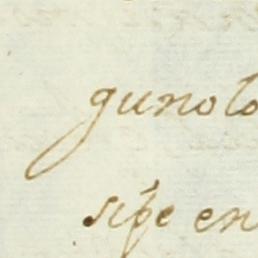 guno lo
sipe en